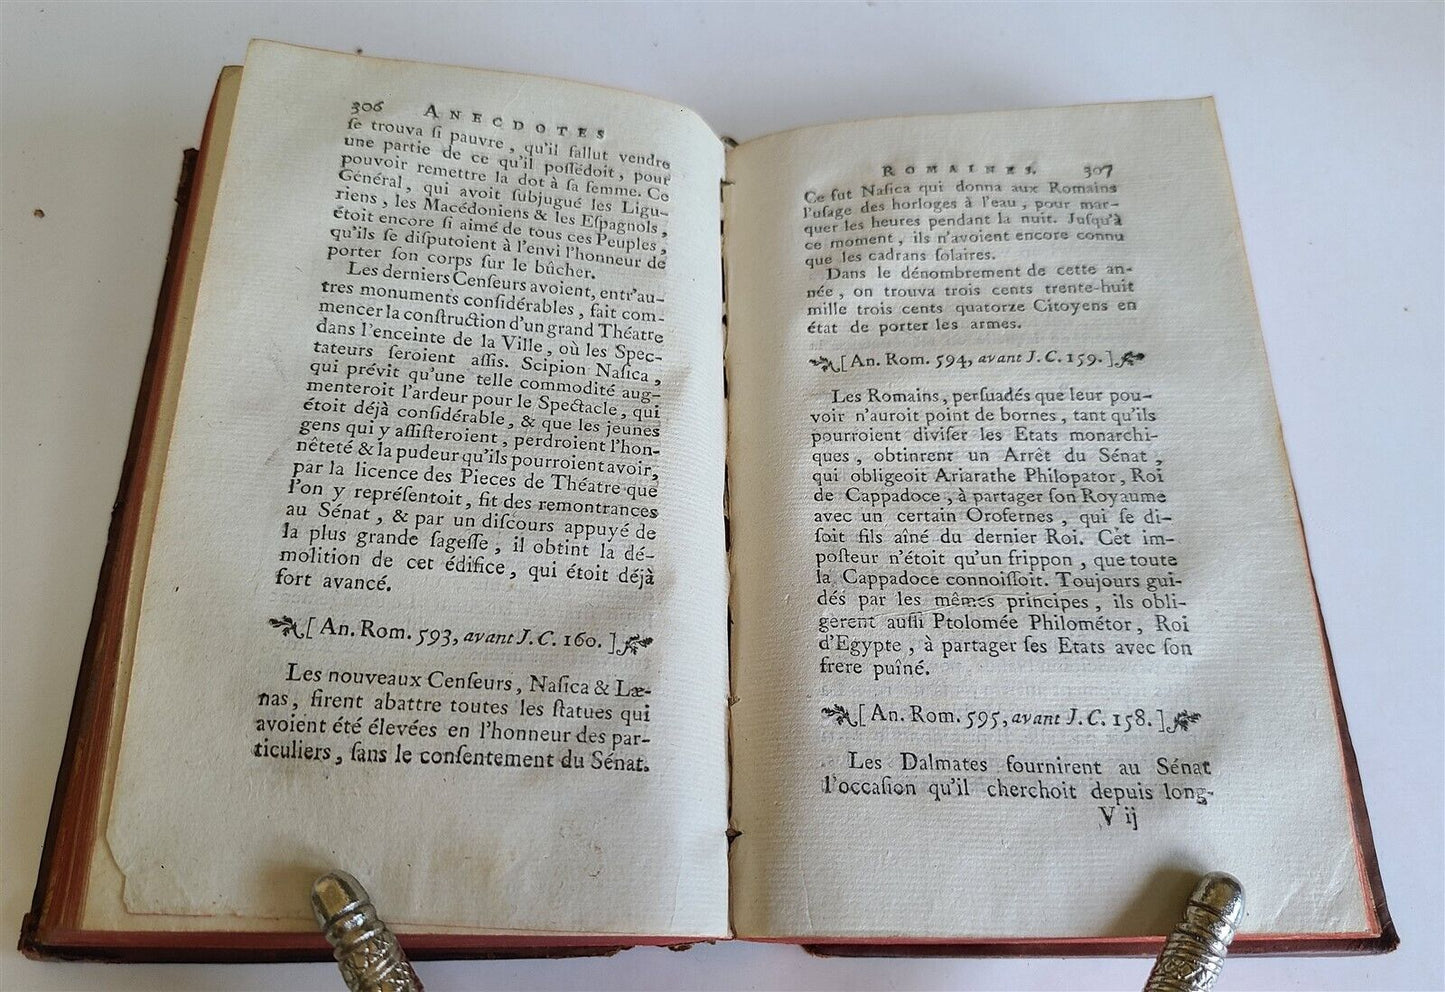 306 ANECDOTES
ſe trouva ſi pauvre, qu'il fallut vendre
une partie de ce qu'il poſſédoit, pour
pouvoir remettre la dot à ſa femme. Ce
Général, qui avoit ſubjugué les Ligu-
riens, les Macédoniens & les Eſpagnols,
étoit encore ſi aimé de tous ces Peuples,
qu'ils ſe diſputoient à l'envi l'honneur de
porter ſon corps ſur le bûcher.
Les derniers Cenſeurs avoient, entr'au-
tres monuments conſidérables, fait com-
mencer la conſtruction d'un grand Théatre
dans l'enceinte de la Ville, où les Spec-
tateurs ſeroient aſſis. Scipion Naſica,
qui prévit qu'une telle commodité aug-
menteroit l'ardeur pour le Spectacle, qui
étoit déjà conſidérable, & que les jeunes
gens qui y aſſiſteroient, perdroient l'hon-
nêteté & la pudeur qu'ils pourroient avoir,
par la licence des Pieces de Théatre que
l'on y repréſentoit, fit des remontrances
au Sénat, & par un diſcours appuyé de
la plus grande ſageſſe, il obtint la dé-
molition de cet édifice, qui étoit déjà
fort avancé.
[An. Rom. 593, avant J. C. 160.]
Les nouveaux Cenſeurs, Naſica & Læ-
nas, firent abattre toutes les ſtatues qui
avoient été élevées en l'honneur des par-
ticuliers, ſans le conſentement du Sénat.
ROMAINES. 307
Ce fut Naſica qui donna aux Romains
l'uſage des horloges à l'eau, pour mar-
quer les heures pendant la nuit. Juſqu'à
ce moment, ils n'avoient encore connu
que les cadrans ſolaires.
Dans le dénombrement de cette an-
née, on trouva trois cents trente-huit
mille trois cents quatorze Citoyens en
état de porter les armes.
[An. Rom. 594, avant J. C. 159.]
Les Romains, perſuadés que leur pou-
voir n'auroit point de bornes, tant qu'ils
pourroient diviſer les Etats monarchi-
ques, obtinrent un Arrêt du Sénat,
qui obligeoit Ariarathe Philopator, Roi
de Cappadoce, à partager ſon Royaume
avec un certain Orofernes, qui ſe di-
ſoit fils aîné du dernier Roi. Cet im-
poſteur n'étoit qu'un frippon, que toute
la Cappadoce connoiſſoit. Toujours gui-
dés par les mêmes principes, ils obli-
gerent auſſi Ptolomée Philométor, Roi
d'Egypte, à partager ſes Etats avec ſon
frere puîné.
[An. Rom. 595, avant J. C. 158.]
Les Dalmates fournirent au Sénat
l'occaſion qu'il cherchoit depuis long-
V ij